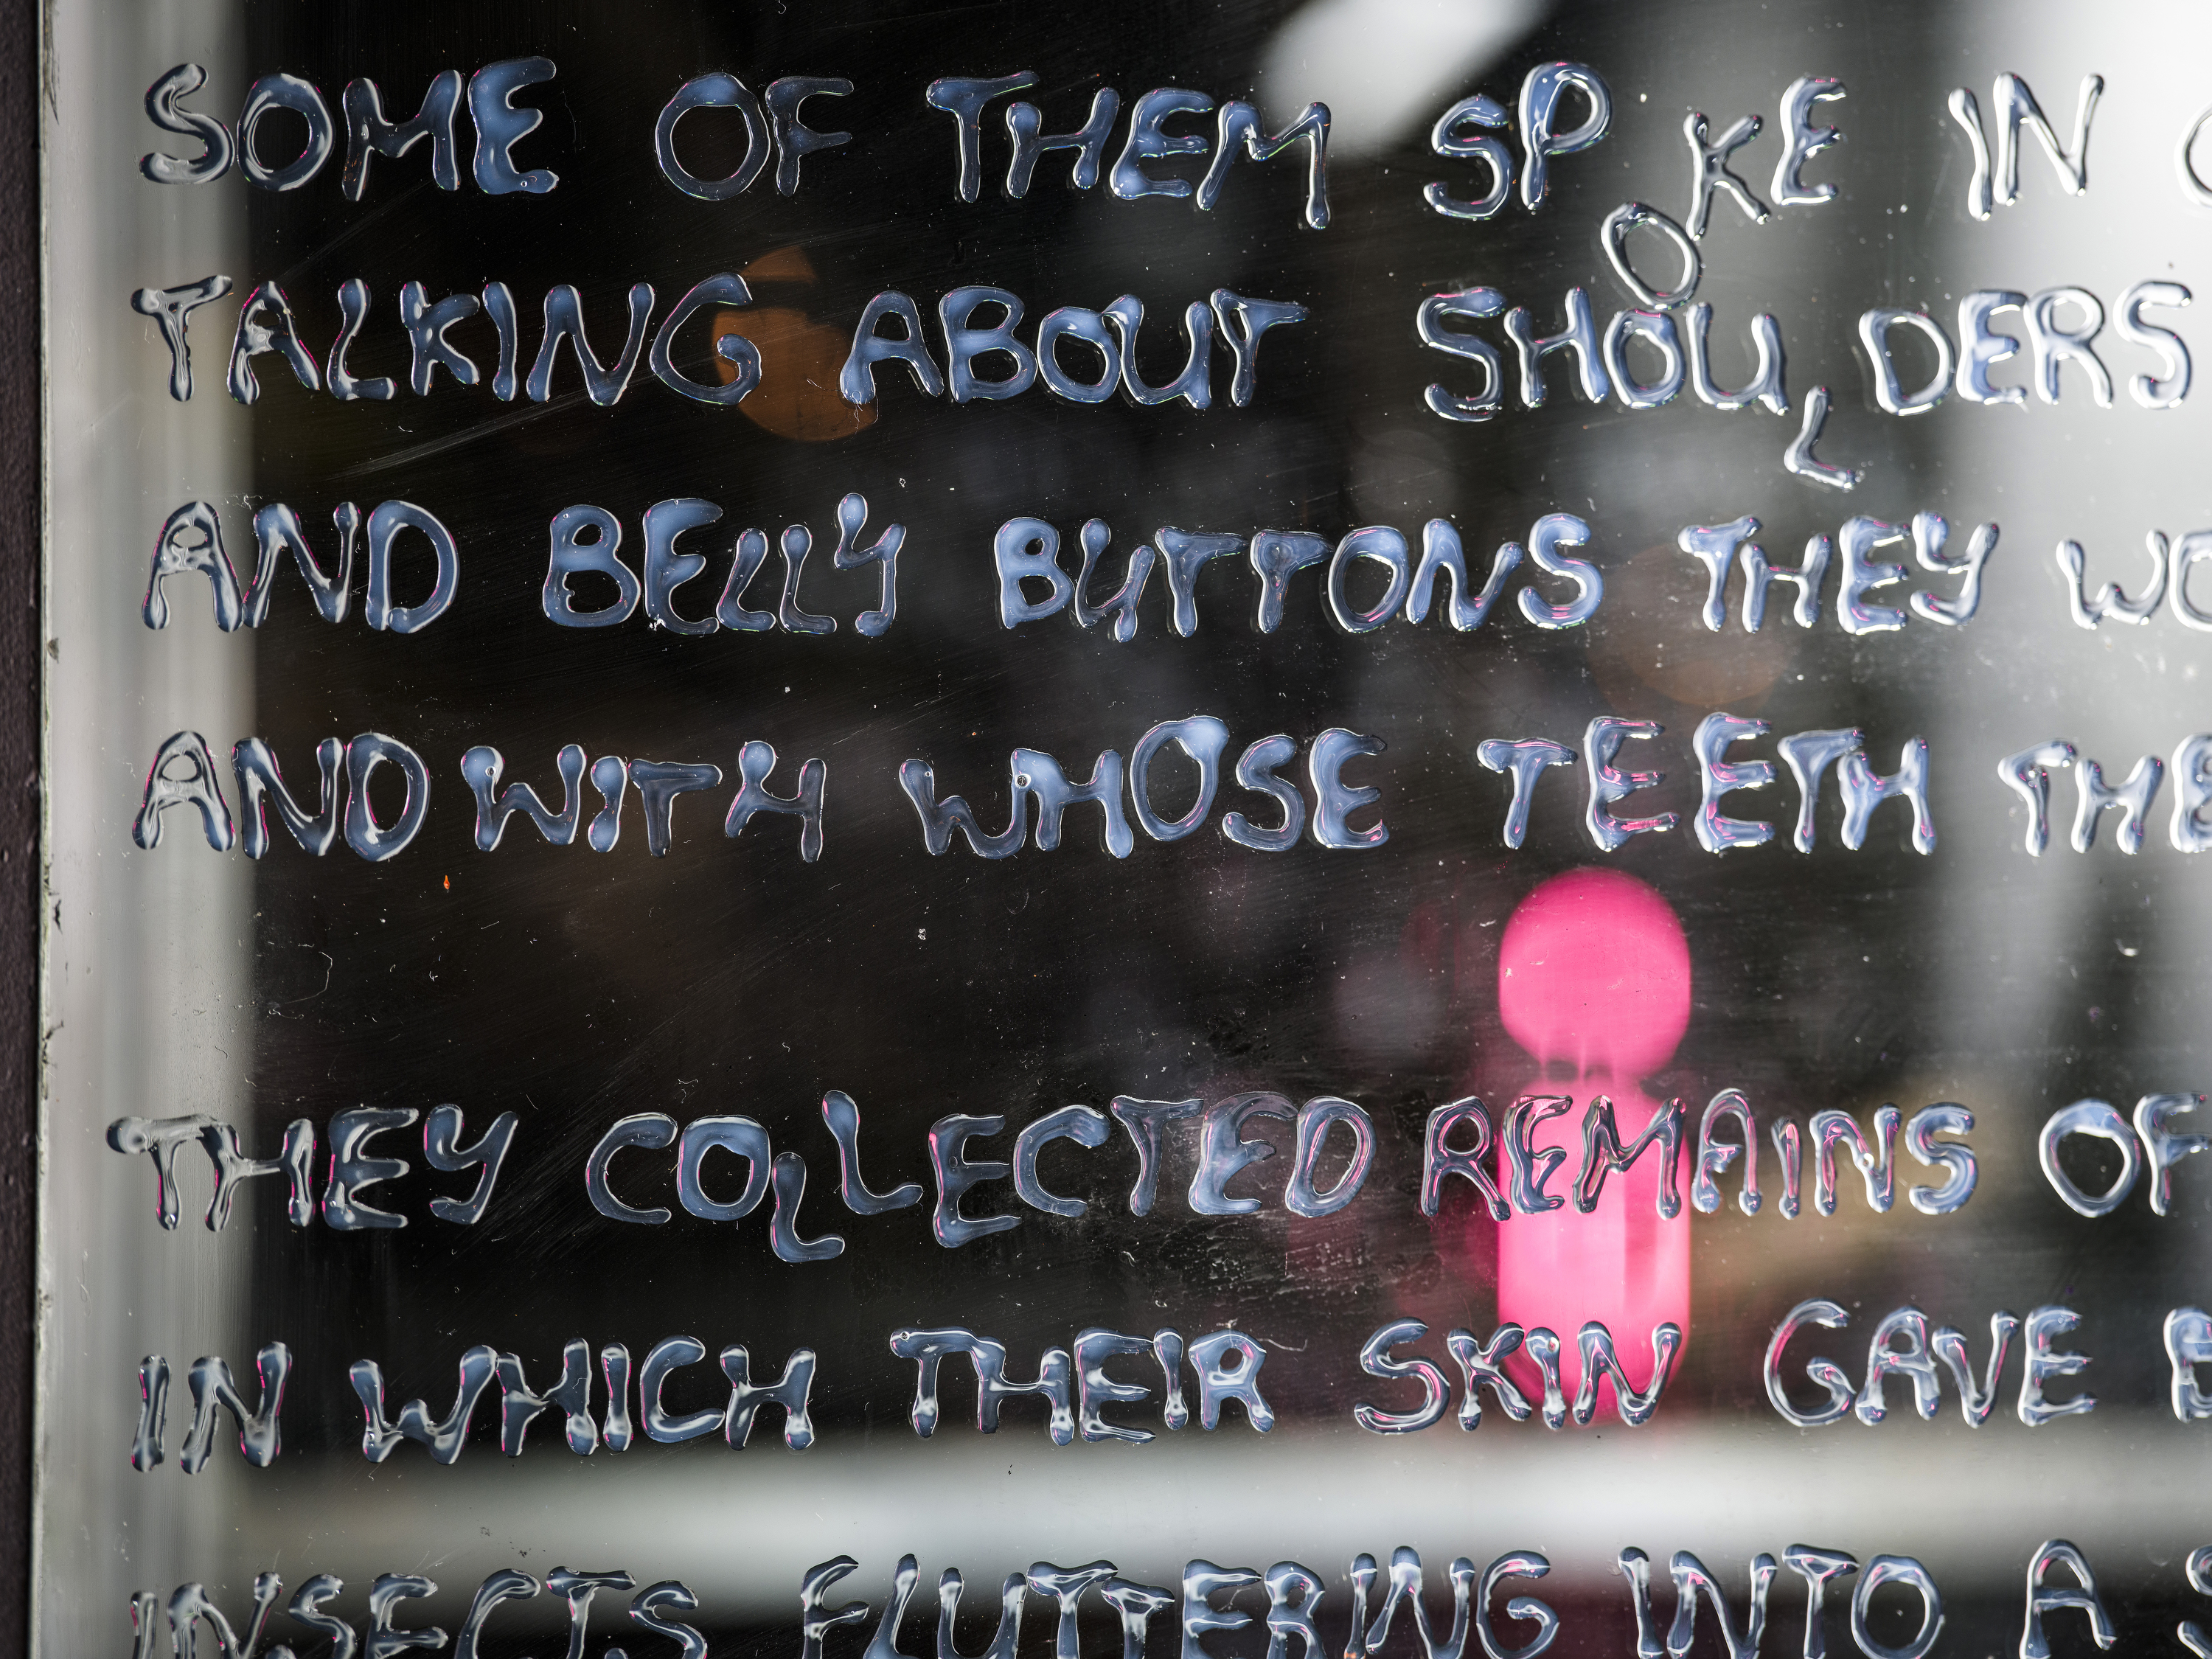 SOME OF THEM SPOKE IN
TALKING ABOUT SHOULDERS
AND BELLY BUTTONS THEY
AND WITH WHOSE TEETH
THEY COLLECTED REMAINS OF
IN WHICH THEIR SKIN GAVE
INSECTS FLUTTERING INTO A